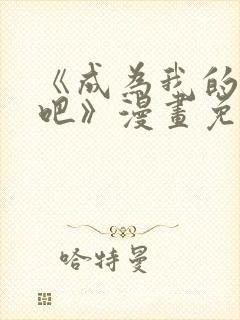 《成为我的
吧》漫畫免
哈特曼